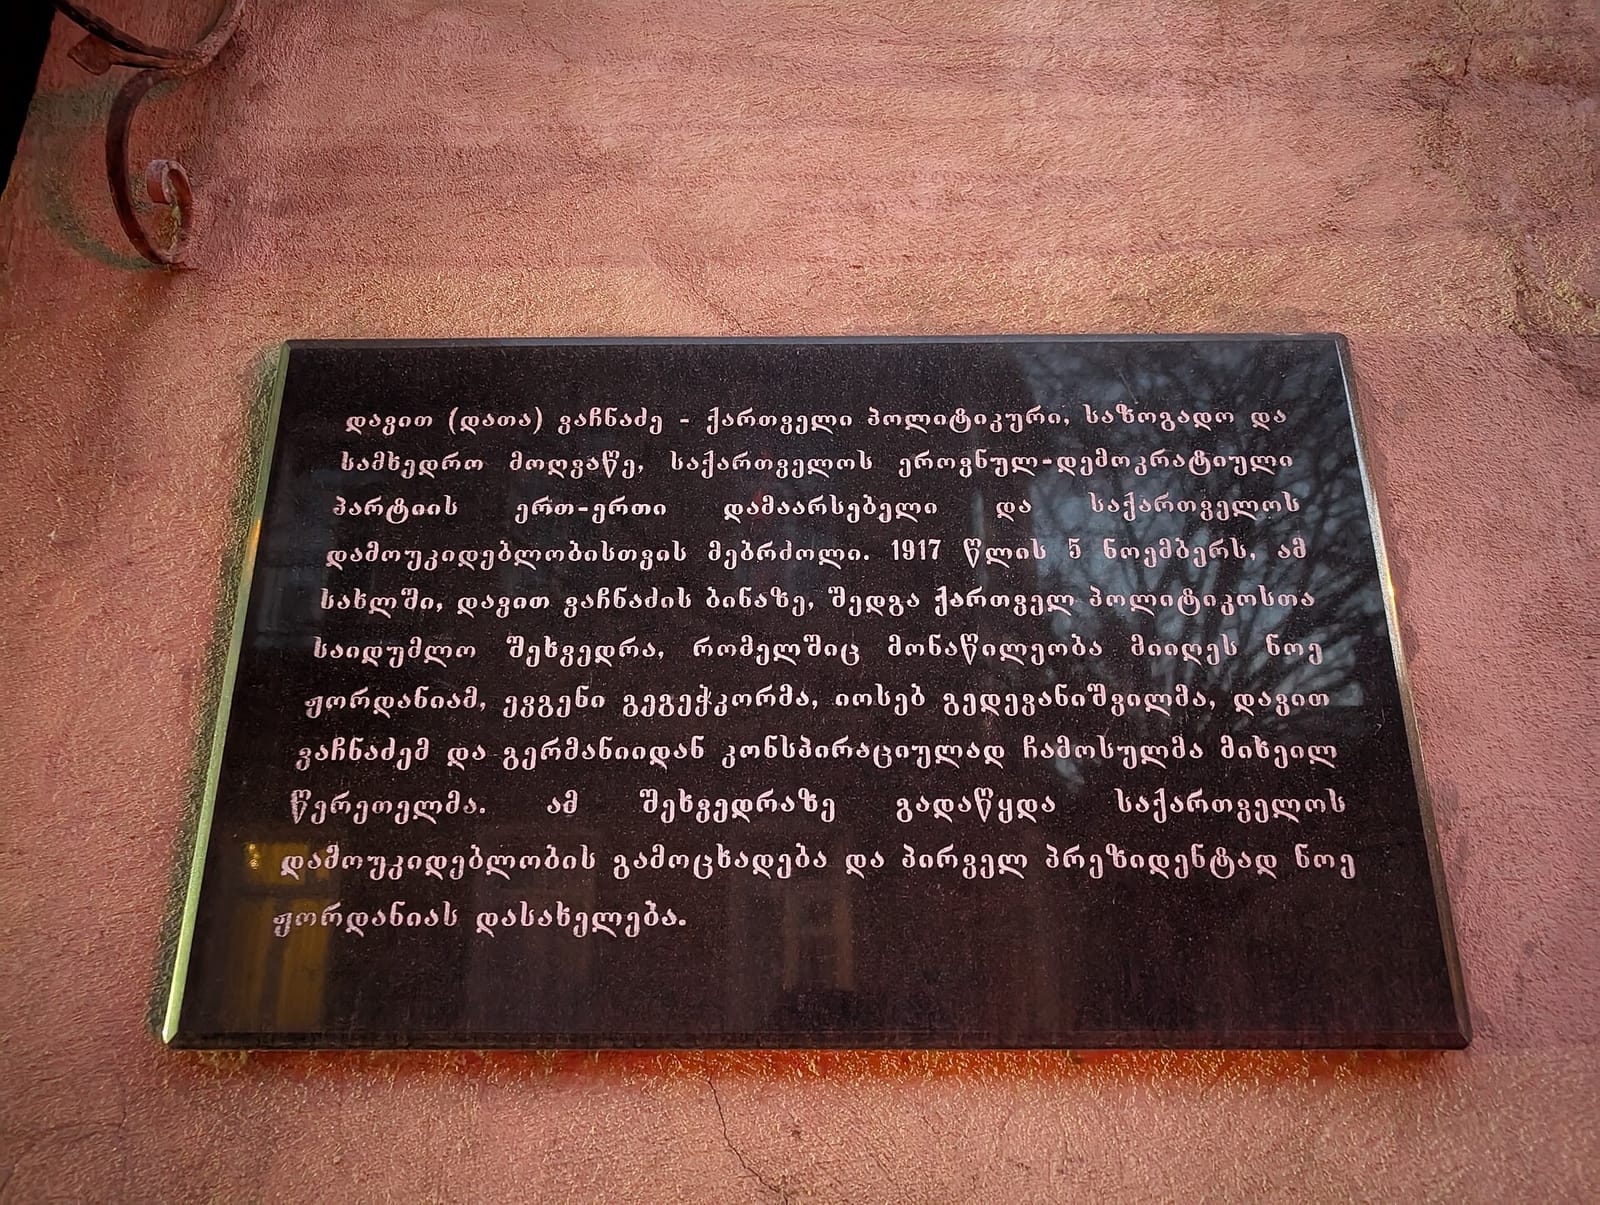 დავით (დათა) ვაჩნაძე - ქართველი პოლიტიკური, საზოგადო და
სამხედრო მოღვაწე, საქართველოს ეროვნულ-დემოკრატიული
პარტიის ერთ-ერთი დამაარსებელი და საქართველოს
დამოუკიდებლობისთვის მებრძოლი. 1917 წლის 5 ნოემბერს, ამ
სახლში, დავით ვაჩნაძის ბინაზე, შედგა ქართველ პოლიტიკოსთა
საიდუმლო შეხვედრა, რომელშიც მონაწილეობა მიიღეს ნოე
ჟორდანიამ, ევგენი გეგეჭკორმა, იოსებ გედევანიშვილმა, დავით
ვაჩნაძემ და გერმანიიდან კონსპირაციულად ჩამოსულმა მიხეილ
წერეთელმა. ამ შეხვედრაზე გადაწყდა საქართველოს
დამოუკიდებლობის გამოცხადება და პირველ პრეზიდენტად ნოე
ჟორდანიას დასახელება.